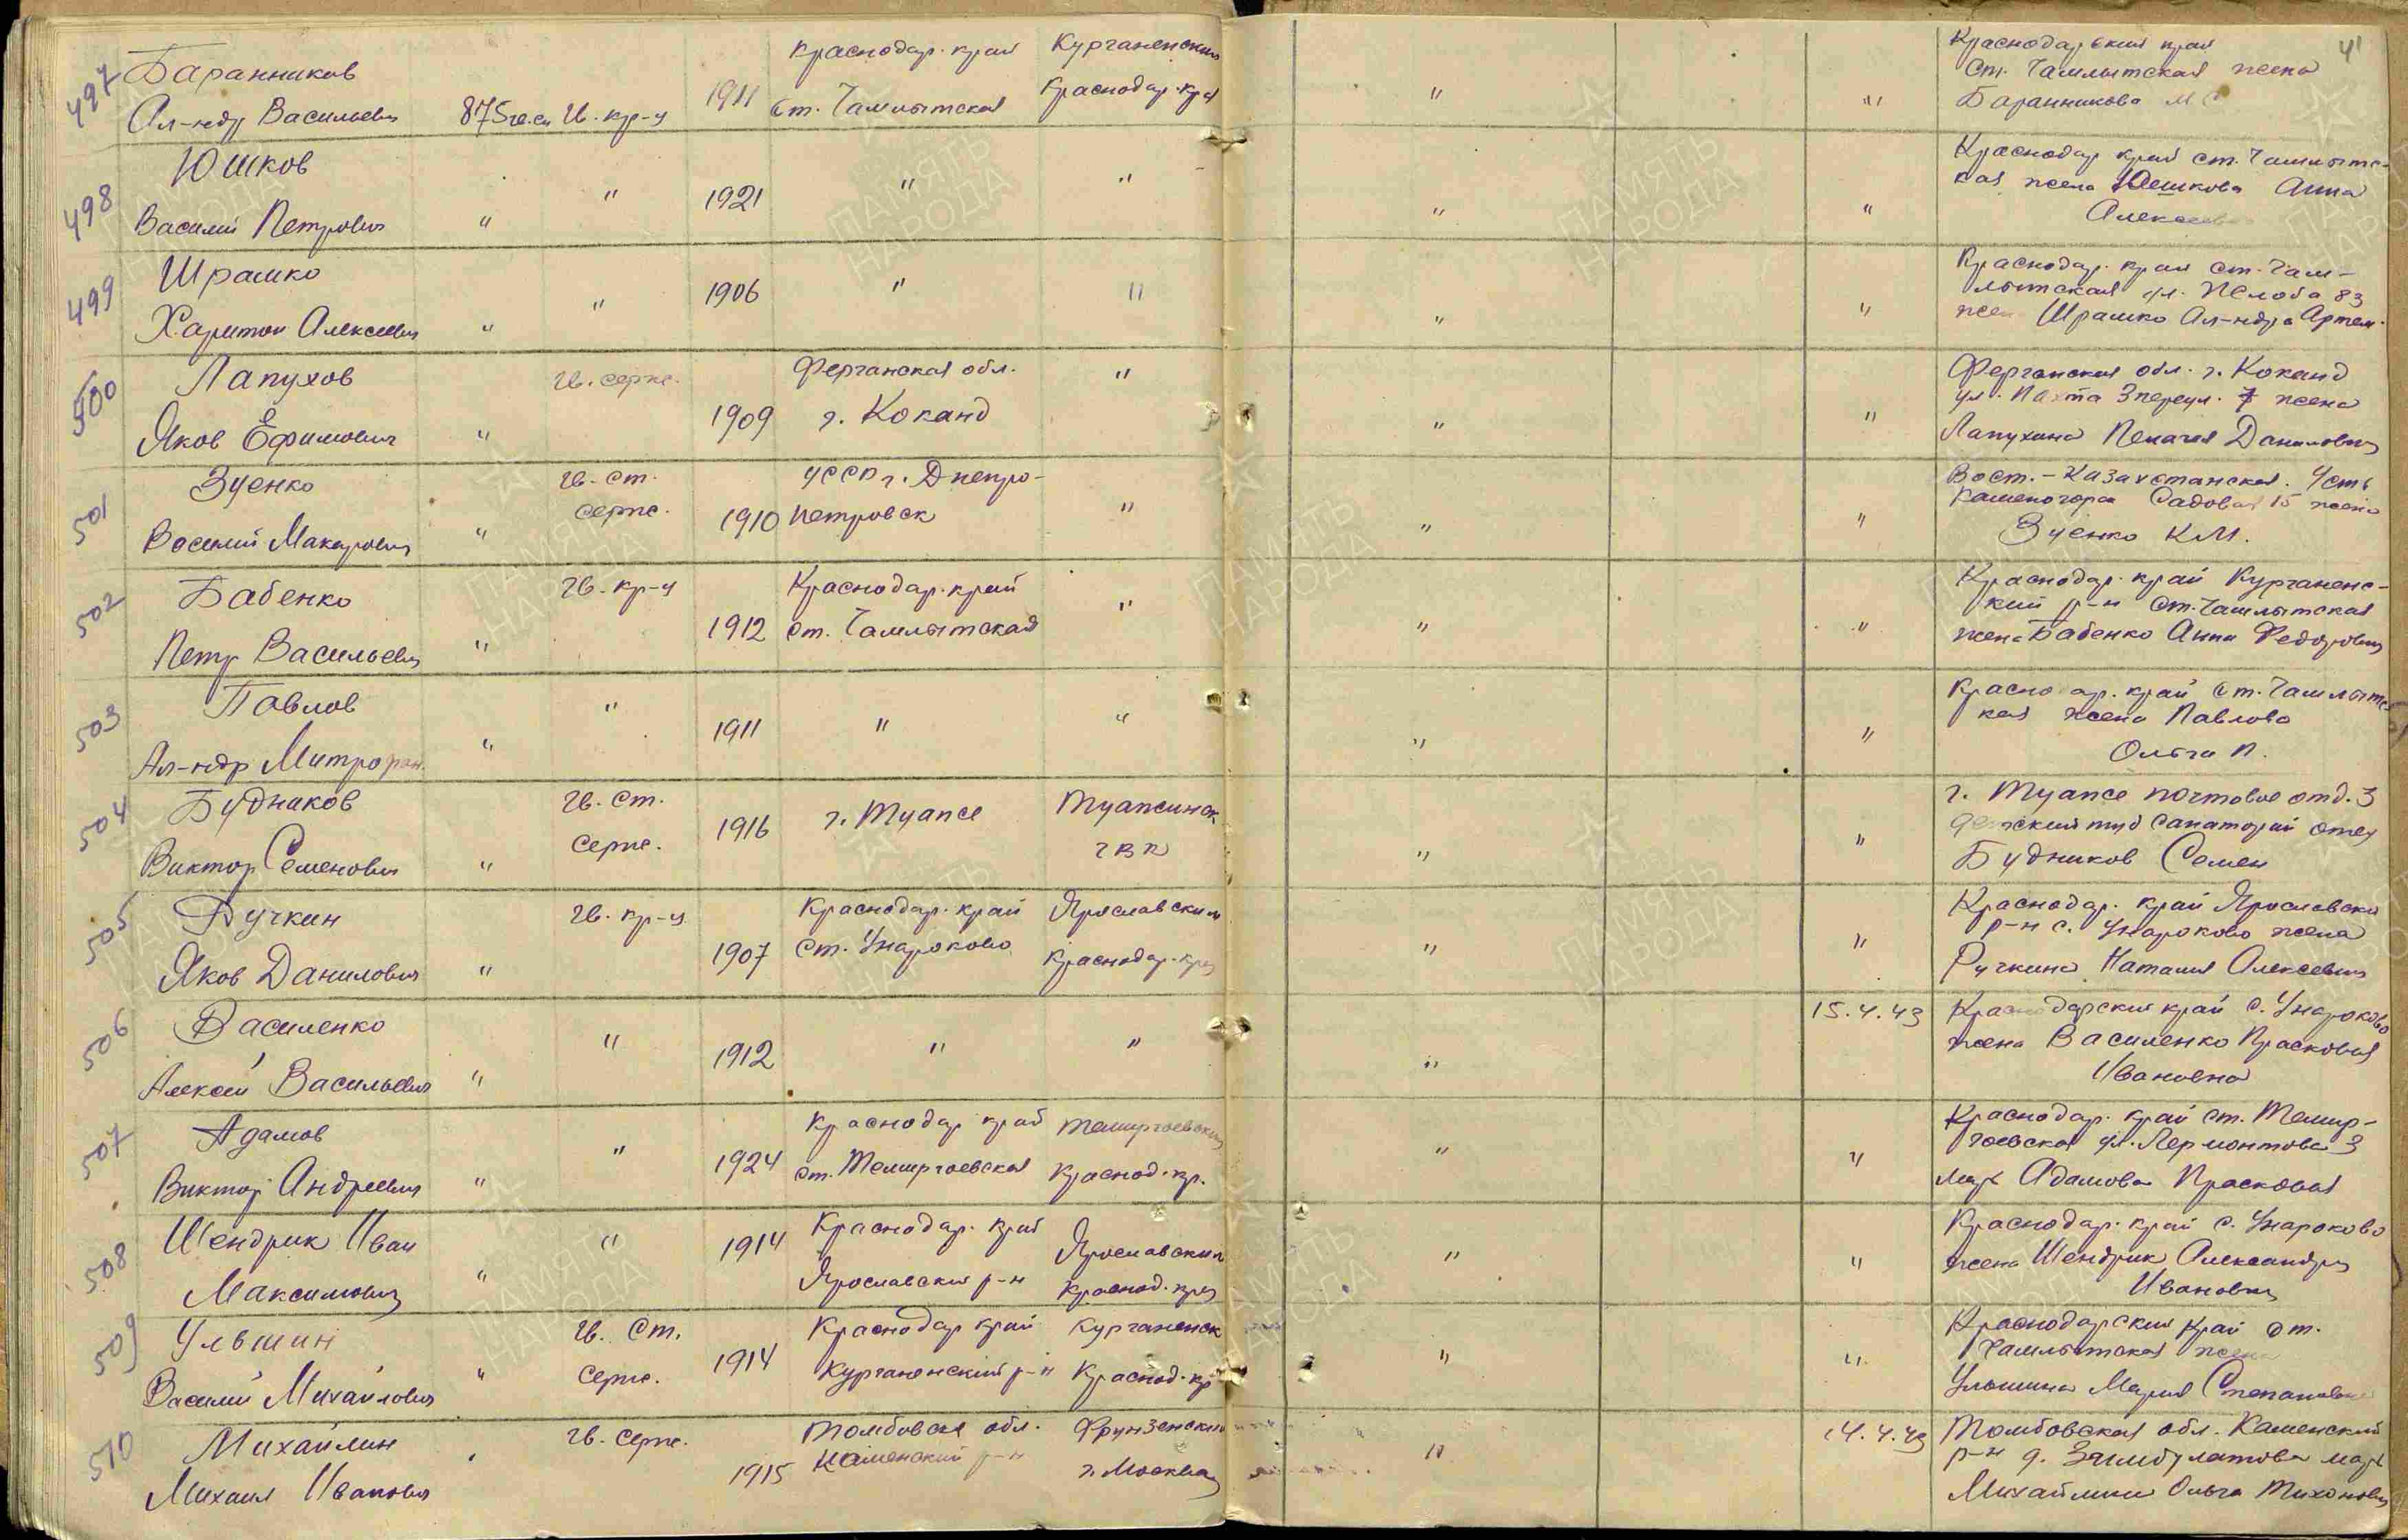 41
497 Баранников
Ал-ндр Васильевич 875 ге.сп Гв. кр-ц 1911
Краснодар. край
ст. Чамлыкская
Курганенским
Краснодар. кра
" "
Краснодарский край
ст. Чамлыкская жена
Баранникова М
498 Юшков
Василий Петрович " " 1921 " " " "
Краснодар край ст. Чамлыкс-
кая жена Юшкова Анна
Алексеев
499 Шрамко
Харитон Алексеевич " " 1906 " " " "
Краснодар. край ст. Чам-
лыкская ул.
жен Шрамко Ал-ндра Артем.
500 Лапухов
Яков Ефимович " Гв. серж. 1909
Ферганская обл.
г. Коканд
" " "
Ферганская обл. г. Коканд
ул. Пахта 3 переул. 7 жена
Лапухина Пелагея Даниловна
501 Зуенко
Василий Макарович " Гв. ст.
серж. 1910
УССР г. Днепро-
петровск
" " "
Вост.-Казахстанская. Усть
Каменогорск Садовая 15 жена
Зуенко К.М.
502 Бабенко
Петр Васильевич " Гв. кр-ц 1912
Краснодар. край
ст. Чамлыкская
" " "
Краснодар. край Курганенс-
кий р-н ст. Чамлыкская
жена Бабенко Анна Федоровна
503 Павлов
Ал-ндр Митрофан. " " 1911 " " " "
Краснодар. край ст. Чамлыкс
кая жена Павлова
Ольга П.
504 Будников
Виктор Семенович " Гв. ст.
серж. 1916
г. Туапсе
Туапсинск
ГВК
" "
г. Туапсе почтовое отд. 3
детский туб санаторий отец
Будников Семен
505 Ручкин
Яков Данилович " Гв. кр-ц 1907
Краснодар. край
ст. Унароково
Ярославским
Краснодар. края
" "
Краснодар. край Ярославски
р-н с. Унароково жена
Ручкина Наталия Алексеевна
506 Василенко
Алексей Васильевич " " 1912 " " " 15.4.43
Краснодарский край с. Унароково
жена Василенко Прасковья
Ивановна
507 Адамов
Виктор Андреевич " " 1924
Краснодар край
ст. Темиргоевская
Темиргоевским
Краснод. кр.
" "
Краснодар. край ст. Темир-
гоевская ул. Лермонтова 3
мать Адамова Прасковья
508 Шендрик Иван
Максимович " " 1914
Краснодар. край
Ярославский р-н
Ярославским
Краснод. края
" "
Краснодар. край с. Унароково
жена Шендрик Александра
Ивановна
509 Ульшин
Василий Михайлович " Гв. ст.
серж. 1914
Краснодар край
Курганенский р-н
Курганенск
Краснод. кр
" "
Краснодарский край ст.
Чамлыкская жена
Ульшина Мария Степановна
510 Михайлин
Михаил Иванович " Гв. серж. 1915
Томбовская обл.
Каменский р-н
Фрунзенским
г. Москва
" 14.4.43
Томбовская обл. Каменский
р-н д. мать
Михайлина Ольга Тихоновна
ПАМЯТЬ
НАРОДА